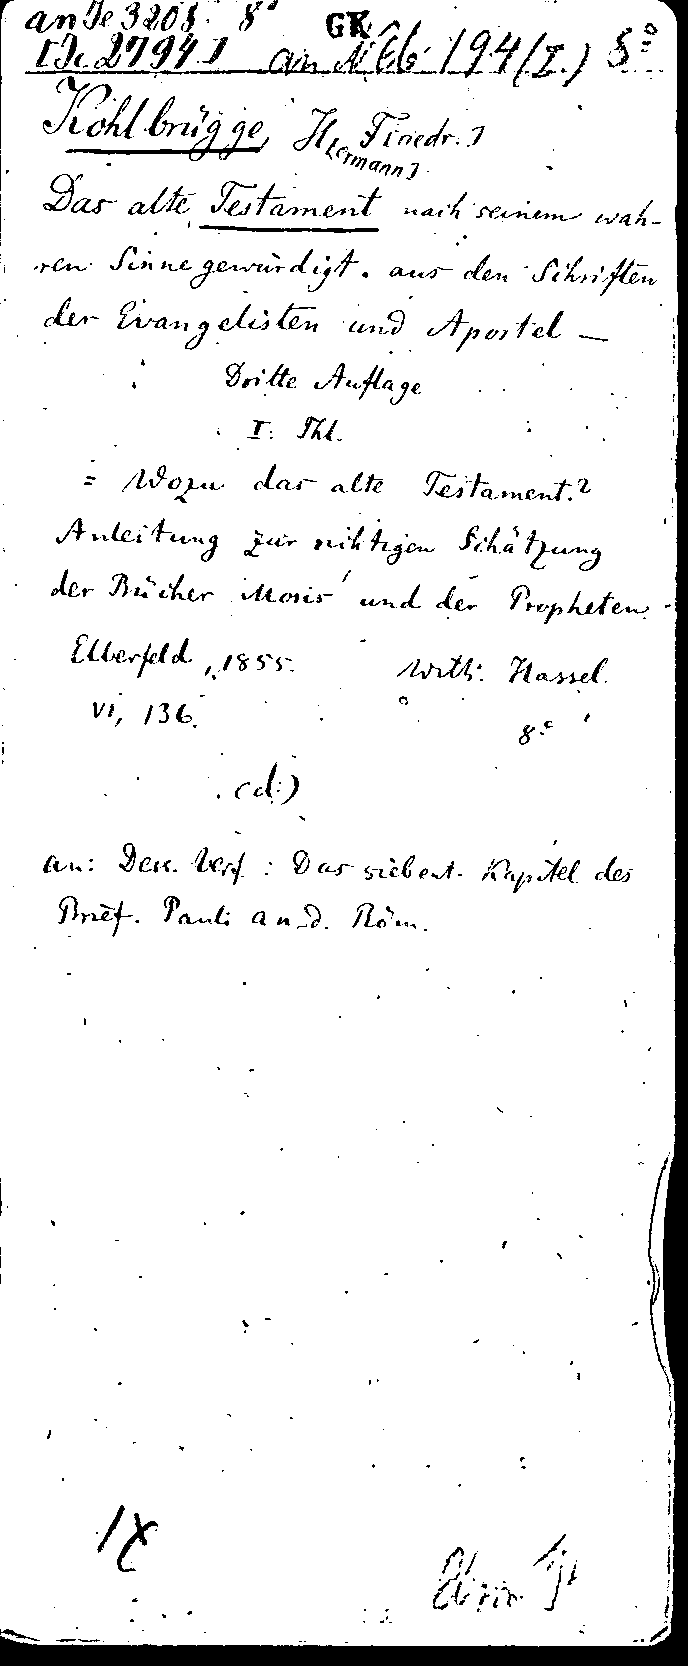 an Je 3208. 8°
GK
[Jc 2794] an N 86 194 (I.) 8°
Kohlbrügge, H[ermann] Friedr.]
Das alte Testament nach seinem wah-
ren Sinne gewürdigt. aus den Schriften
der Evangelisten und Apostel —
Dritte Auflage
I. Thl.
= Wozu das alte Testament?
Anleitung zur richtigen Schätzung
der Bücher Mosis und der Propheten
Elberfeld, 1855. Wilh. Hassel.
VI, 136. 8°
(d.)
an: Dess. Verf.: Das siebent. Kapitel des
Brief. Pauli an d. Röm.